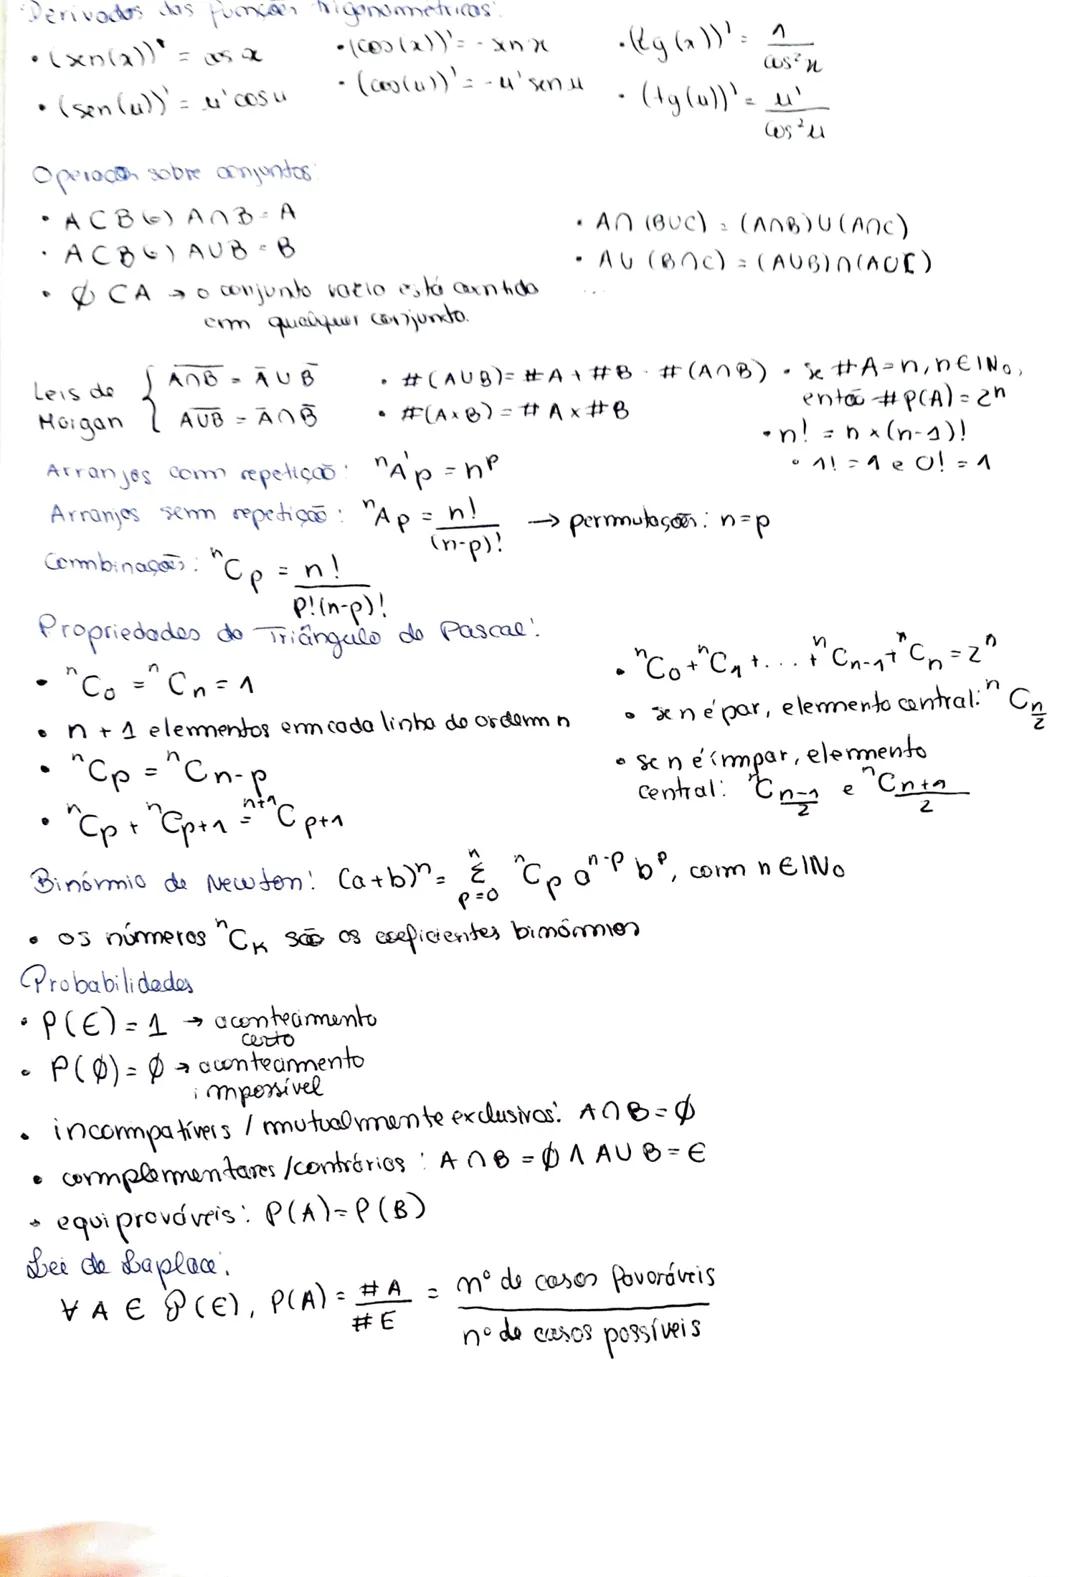 Derivadas das funções trigonométricas:
• (sen(x))' = cos x • (cos(x))' = - sen x • (tg(x))' = 1/cos²x
• (sen(u))' = u' cos u • (cos(u))' = - u' sen u • (tg(u))' = u'/cos²u
Operações sobre conjuntos:
• A ⊂ B (=) A∩B = A • A∩(B∪C) = (A∩B)∪(A∩C)
• A ⊂ B (=) A∪B = B • A∪(B∩C) = (A∪B)∩(A∪C)
• ∅ ⊂ A → o conjunto vazio está contido ...
em qualquer conjunto.
Leis de Morgan { A̅∩̅B̅ = A̅ ∪ B̅ • #(A∪B) = #A + #B - #(A∩B) • se #A = n, n ∈ IN₀,
A̅∪̅B̅ = A̅ ∩ B̅ • #(A×B) = #A × #B então #P(A) = 2ⁿ
• n! = n × (n-1)!
• 1! = 1 e 0! = 1
Arranjos com repetição: ⁿA'p = nᵖ
Arranjos sem repetição: ⁿAp = n!/(n-p)! → permutações: n=p
Combinações: ⁿCp = n!/p!(n-p)!
Propriedades do Triângulo de Pascal:
• ⁿC₀ = ⁿCn = 1 • ⁿC₀ + ⁿC₁ + ... + ⁿCn-1 + ⁿCn = 2ⁿ
• n + 1 elementos em cada linha de ordem n • se n é par, elemento central: ⁿC n/2
• ⁿCp = ⁿCn-p • se n é ímpar, elemento
central: ⁿC (n-1)/2 e ⁿC (n+1)/2
• ⁿCp + ⁿCp+1 = ⁿ⁺¹Cp+1
Binómio de Newton: (a+b)ⁿ = Σ (p=0, n) ⁿCp aⁿ⁻ᵖ bᵖ, com n ∈ IN₀
• os números ⁿCk são os coeficientes binómios
Probabilidades
• P(E) = 1 → acontecimento
certo
• P(∅) = ∅ → acontecimento
impossível
• incompatíveis / mutualmente exclusivos: A∩B = ∅
• complementares / contrários: A∩B = ∅ ∧ A∪B = E
• equiprováveis: P(A) = P(B)
Lei de Laplace:
∀ A ∈ P(E), P(A) = #A/#E = nº de casos favoráveis/nº de casos possíveis